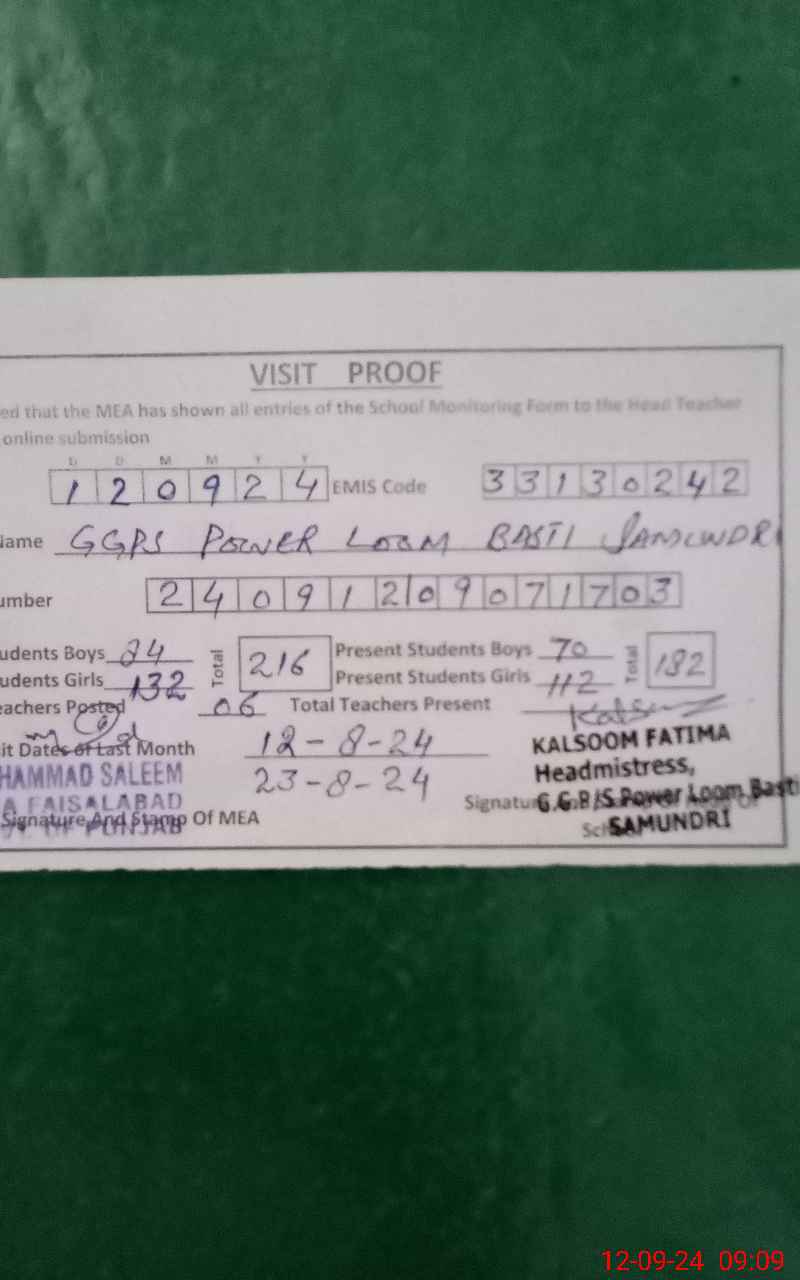 VISIT PROOF
ed that the MEA has shown all entries of the School Monitoring Form to the Head Teacher
online submission
D D M M Y Y
1 2 0 9 2 4 EMIS Code 3 3 1 3 0 2 4 2
Name GGPS POWER LOOM BASTI SAMUNDRI
umber 2 4 0 9 1 2 0 9 0 7 1 7 0 3
udents Boys 84 Total 216 Present Students Boys 70 Total 182
udents Girls 132 Present Students Girls 112
eachers Posted 06 Total Teachers Present
it Dates of Last Month 12-8-24
23-8-24
HAMMAD SALEEM
A FAISALABAD
OF PUNJAB
Signature And Stamp Of MEA
KALSOOM FATIMA
Headmistress,
G.G.P/S Power Loom Basti
SAMUNDRI
12-09-24 09:09